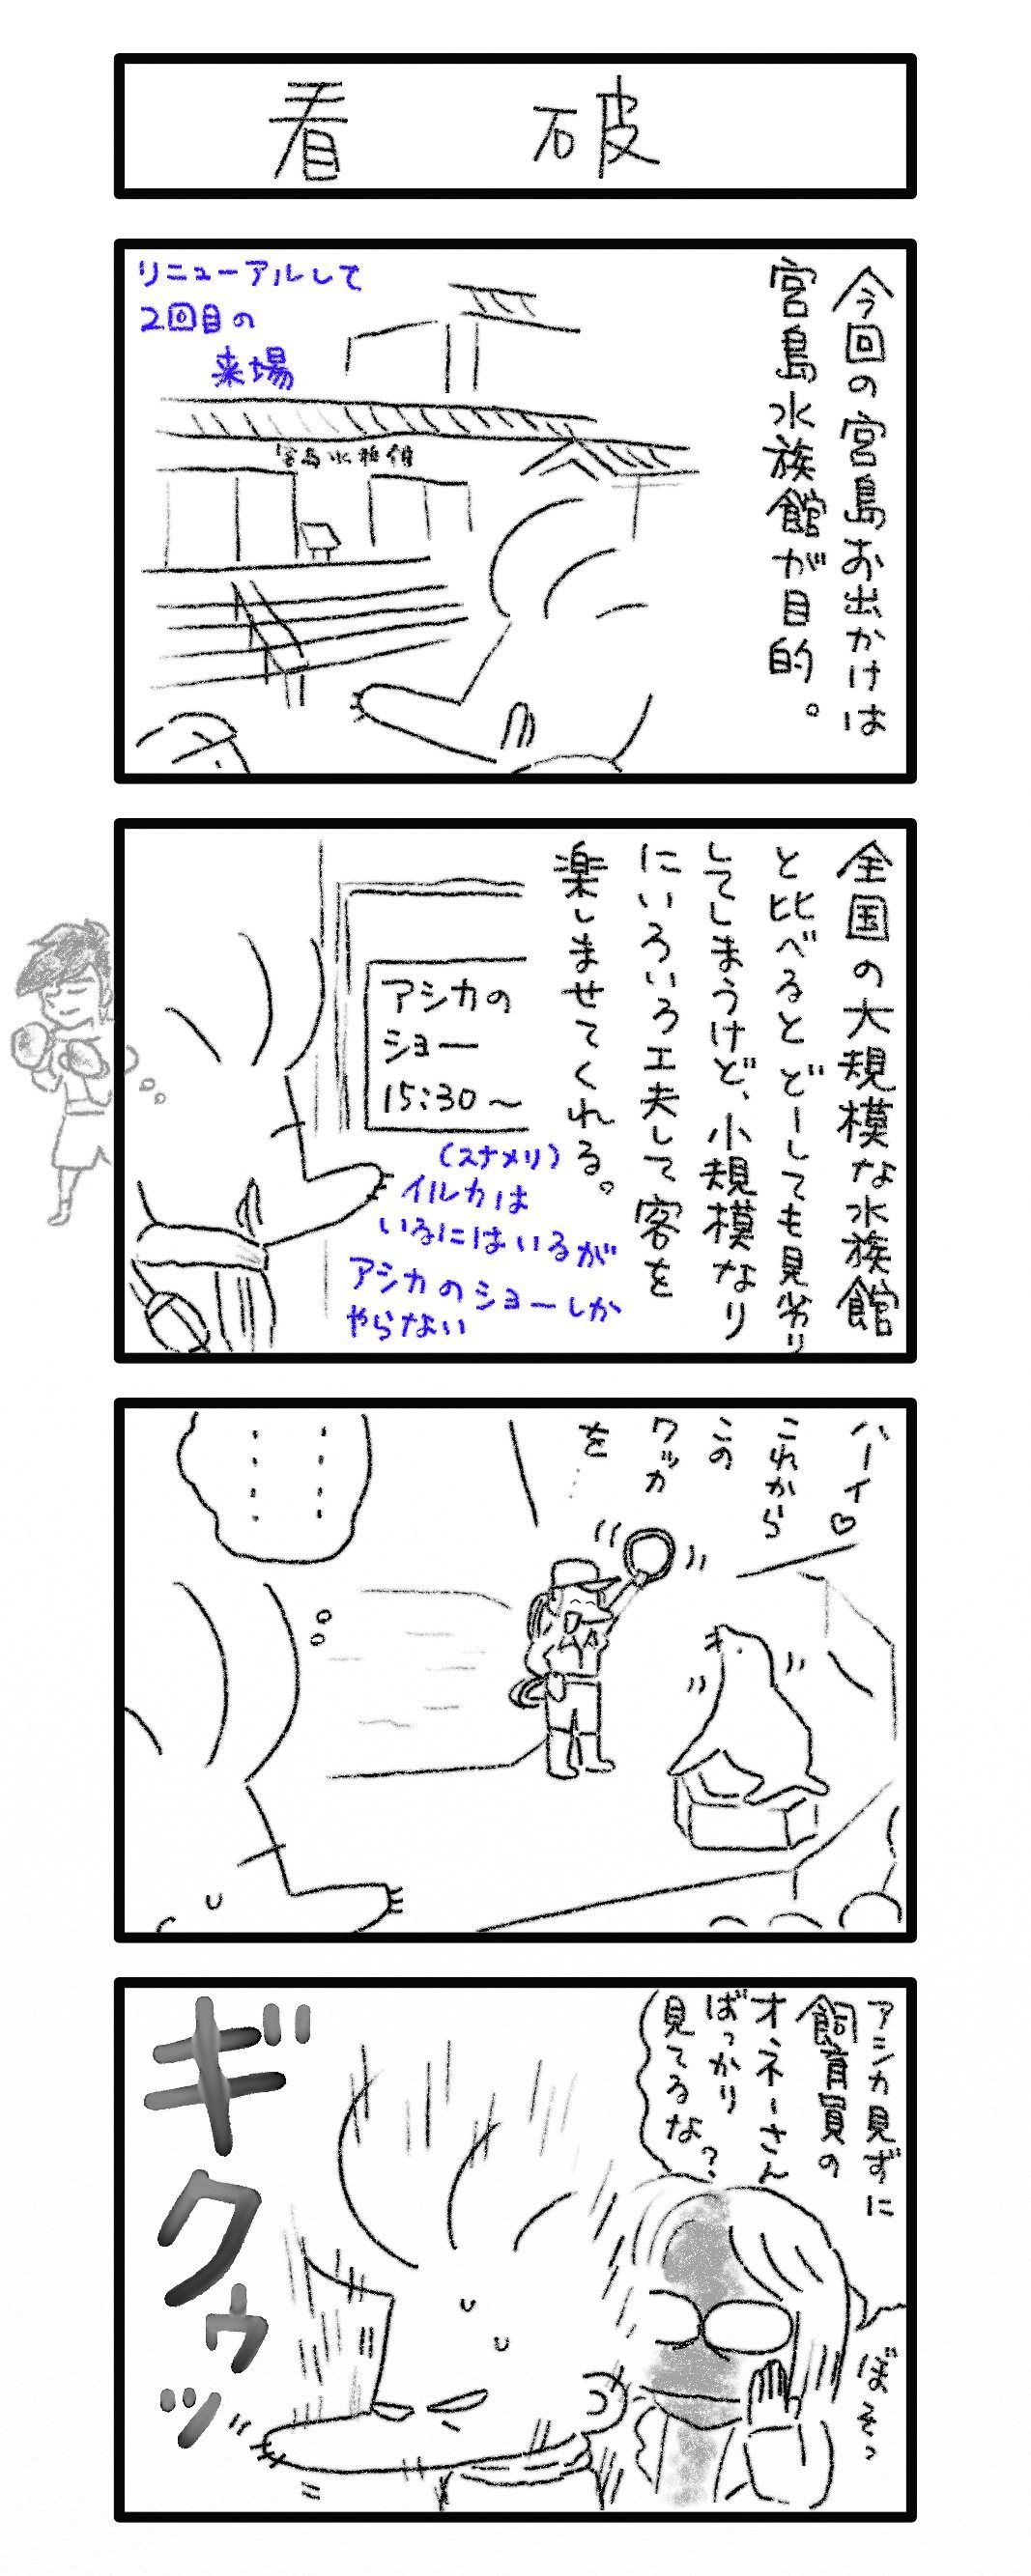 看破
今回の宮島お出かけは
宮島水族館が目的。
リニューアルして
2回目の
来場
宮島水族館
全国の大規模な水族館
と比べるとどーしても見劣り
してしまうけど、小規模なり
にいろいろ工夫して客を
楽しませてくれる。
アシカの
ショー
15:30〜
(スナメリ)
イルカは
いるにはいるが
アシカのショーしか
やらない
ハーイ♡
これから
この
ワッカ
を……
・・・・
・・・・
アシカ見ずに
飼育員の
オネーさん
ばっかり
見てるな?
ぼそっ
ギクゥッ